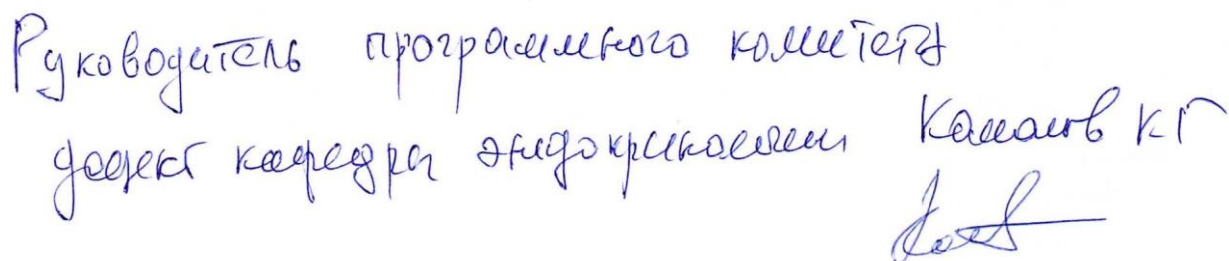 Руководитель программного комитета
доцент кафедры эндокринологии Камалов КГ